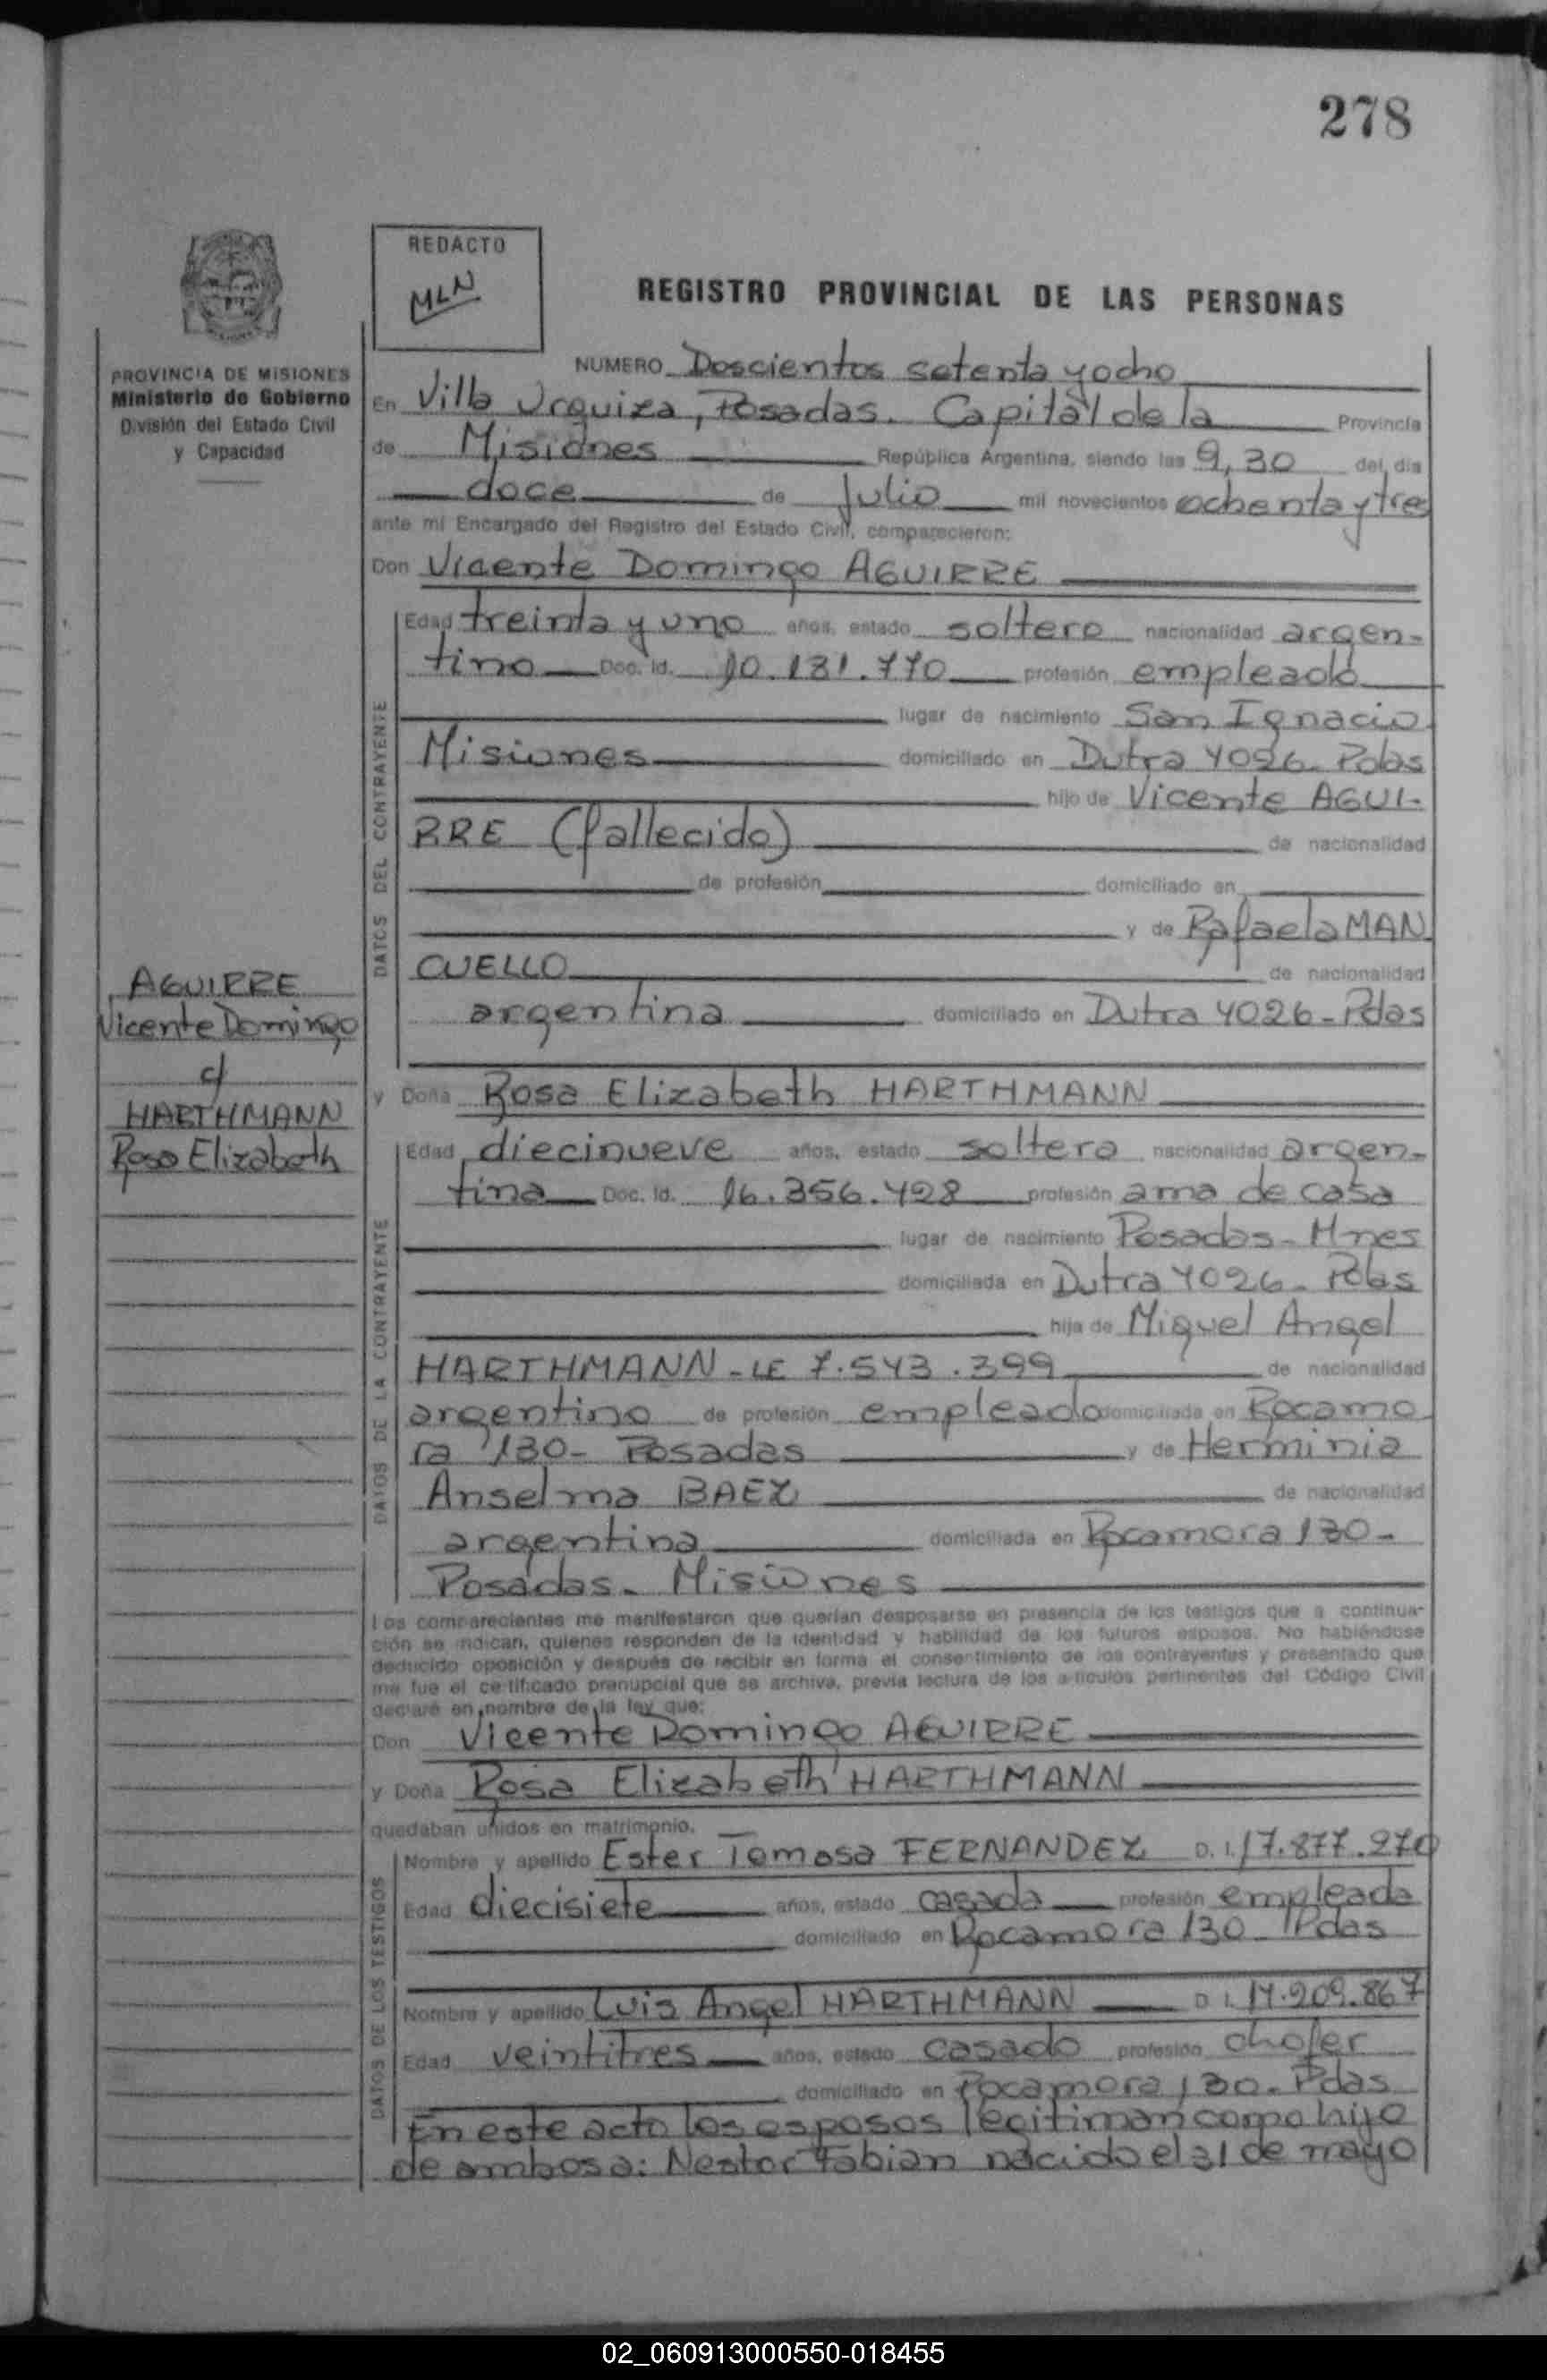 278
REDACTO
MLN
REGISTRO PROVINCIAL DE LAS PERSONAS
PROVINCIA DE MISIONES
Ministerio de Gobierno
División del Estado Civil
y Capacidad
NUMERO Doscientos setenta y ocho
En Villa Urquiza, Posadas. Capital de la Provincia
de Misiones República Argentina, siendo las 9,30 del día
doce de Julio mil novecientos ochenta y tres
ante mí Encargado del Registro del Estado Civil, comparecieron:
Don Vicente Domingo AGUIRRE
DATOS DEL CONTRAYENTE
Edad treinta y uno años, estado soltero nacionalidad argen-
tino Doc. Id. 10.181.770 profesión empleado
lugar de nacimiento San Ignacio
Misiones domiciliado en Dutra 4026. Pdas
hijo de Vicente AGUI-
RRE (fallecido) de nacionalidad
de profesión domiciliado en
y de Rafaela MAN
CUELLO de nacionalidad
argentina domiciliado en Dutra 4026 - Pdas
AGUIRRE
Vicente Domingo
c/
HARTHMANN
Rosa Elizabeth
y Doña Rosa Elizabeth HARTHMANN
DATOS DE LA CONTRAYENTE
Edad diecinueve años, estado soltera nacionalidad argen-
tina Doc. Id. 16.356.428 profesión ama de casa
lugar de nacimiento Posadas - Mnes
domiciliada en Dutra 4026 - Pdas
hija de Miguel Angel
HARTHMANN - LE 7.543.399 de nacionalidad
argentino de profesión empleado domiciliada en Rocamo
ra 130 - Posadas y de Herminia
Anselma BAEZ de nacionalidad
argentina domiciliada en Rocamora 130 -
Posadas. Misiones
Los comparecientes me manifestaron que querían desposarse en presencia de los testigos que a continua-
ción se indican, quienes responden de la identidad y habilidad de los futuros esposos. No habiéndose
deducido oposición y después de recibir en forma el consentimiento de los contrayentes y presentado que
me fue el certificado prenupcial que se archiva, previa lectura de los artículos pertinentes del Código Civil
declaré en nombre de la ley que:
Don Vicente Domingo AGUIRRE
y Doña Rosa Elizabeth HARTHMANN
quedaban unidos en matrimonio.
DATOS DE LOS TESTIGOS
Nombre y apellido Ester Tomasa FERNANDEZ D. I. 17.877.270
Edad diecisiete años, estado casada profesión empleada
domiciliado en Rocamora 130 - Pdas
Nombre y apellido Luis Angel HARTHMANN D I. 14.209.867
Edad veintitres años, estado casado profesión chofer
domiciliado en Rocamora 130. Pdas
En este acto los esposos legitiman como hijo
de ambos a: Nestor Fabian nacido el 31 de mayo
02_060913000550-018455